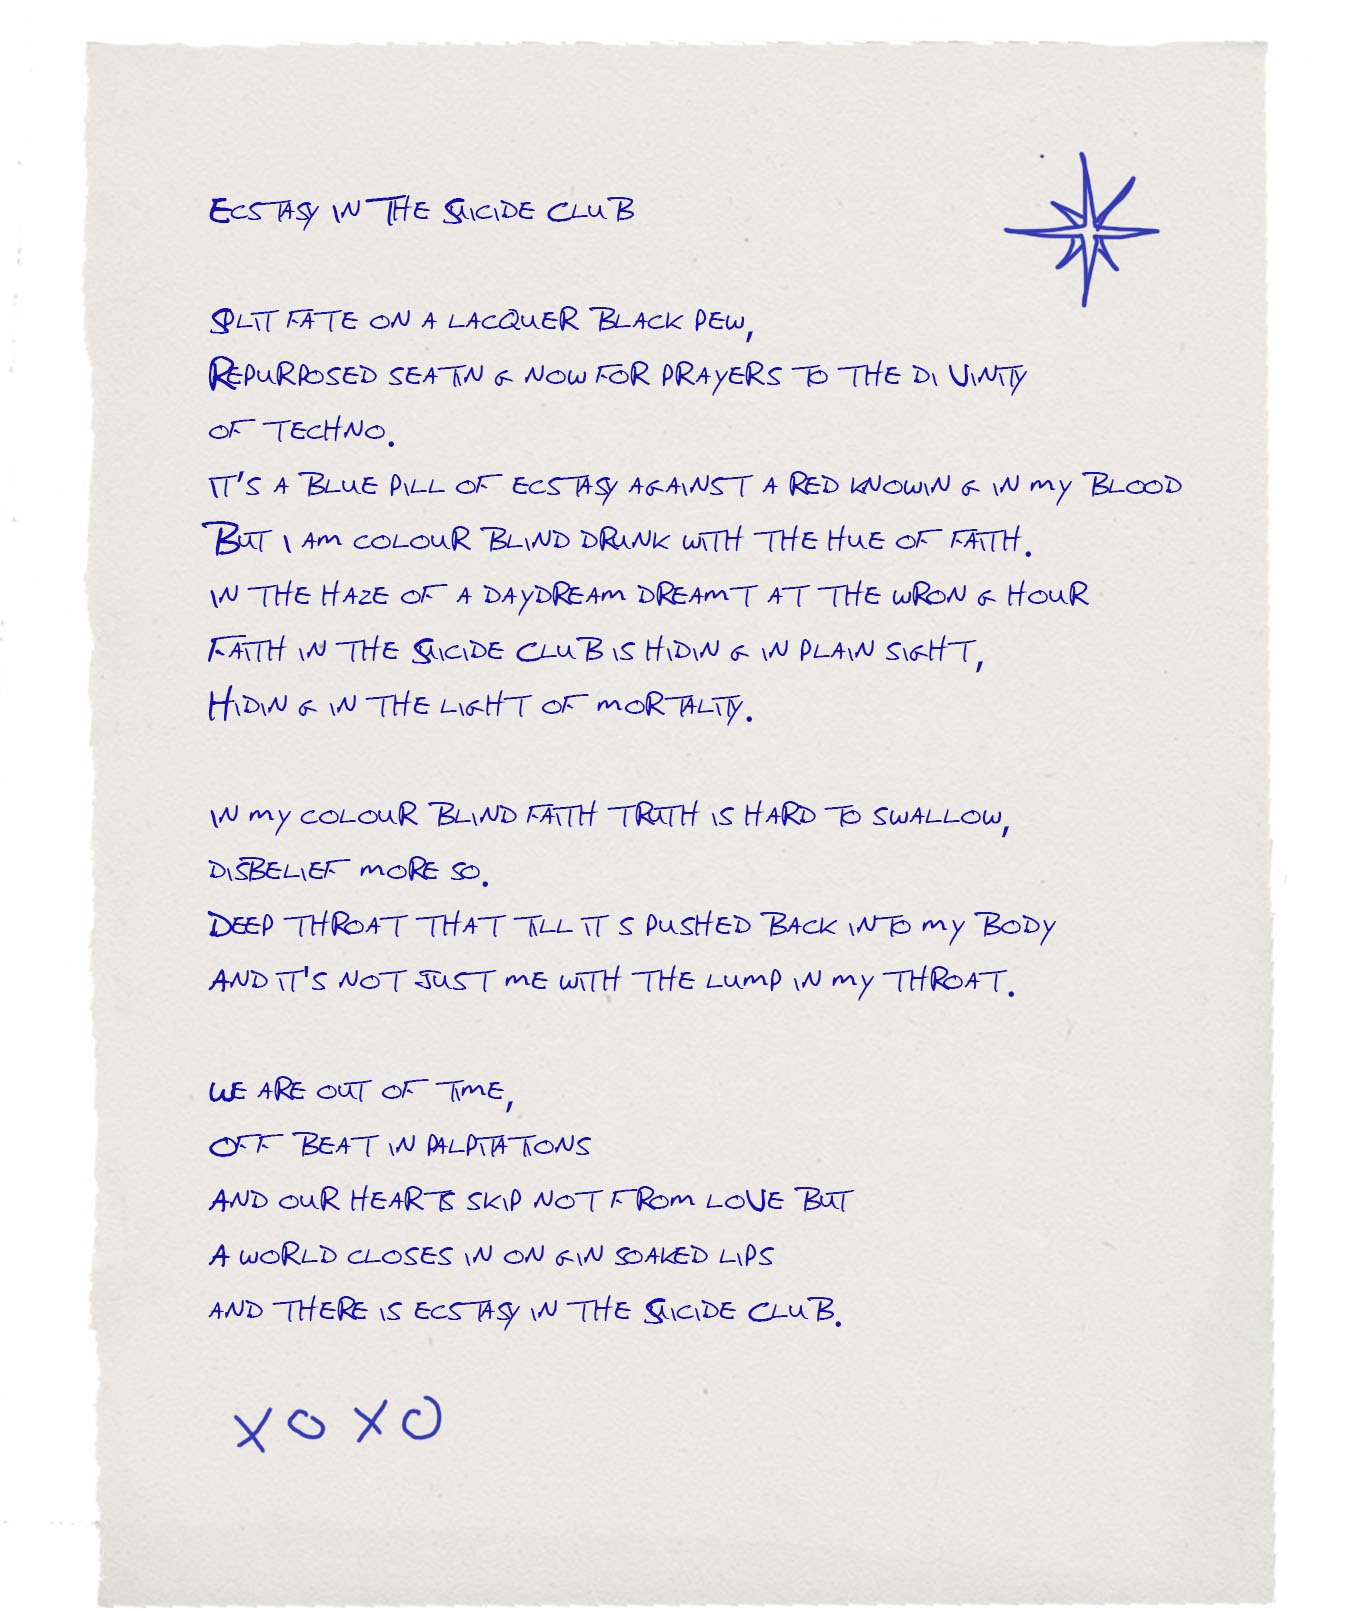 Ecstasy in The Suicide Club
Split fate on a lacquer black pew,
Repurposed seating now for prayers to the divinity
of techno.
it's a blue pill of ecstasy against a red knowing in my blood
But i am colour blind drunk with the hue of faith.
in the haze of a daydream dreamt at the wrong hour
Faith in the Suicide Club is hiding in plain sight,
Hiding in the light of mortality.
in my colour blind faith truth is hard to swallow,
disbelief more so.
Deep throat that till it s pushed back into my body
and it's not just me with the lump in my throat.
We are out of time,
Off beat in palpitations
And our hearts skip not from love but
A world closes in on gin soaked lips
and there is ecstasy in the Suicide Club.
XOXO